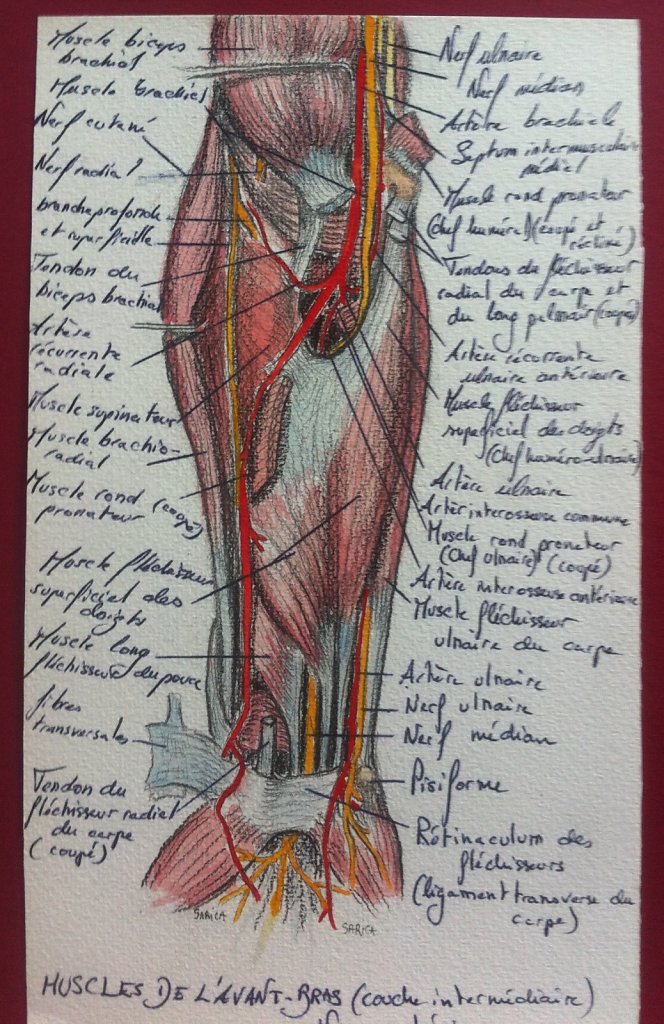 Muscle biceps
brachial
Muscle brachial
Nerf cutané
Nerf radial
branche profonde
et superficielle
Tendon du
biceps brachial
Artère
récurrente
radiale
Muscle supinateur
Muscle brachio-
radial
Muscle rond (coupé)
pronateur
Muscle fléchisseur
superficiel des
doigts
Muscle long
fléchisseur du pouce
fibres
transversales
Tendon du
fléchisseur radial
du carpe
(coupé)
Nerf ulnaire
Nerf médian
Artère brachiale
Septum intermusculaire
médial
Muscle rond pronateur
(Chef huméral) (coupé et
récliné)
Tendons du fléchisseur
radial du carpe et
du long palmaire (coupés)
Artère récurrente
ulnaire antérieure
Muscle fléchisseur
superficiel des doigts
(Chef huméro-ulnaire)
Artère ulnaire
Artère interosseuse commune
Muscle rond pronateur
(Chef ulnaire) (coupé)
Artère interosseuse antérieure
Muscle fléchisseur
ulnaire du carpe
Artère ulnaire
Nerf ulnaire
Nerf médian
Pisiforme
Rétinaculum des
fléchisseurs
(ligament transverse du
carpe)
SARICA
SARICA
MUSCLES DE L'AVANT-BRAS (couche intermédiaire)